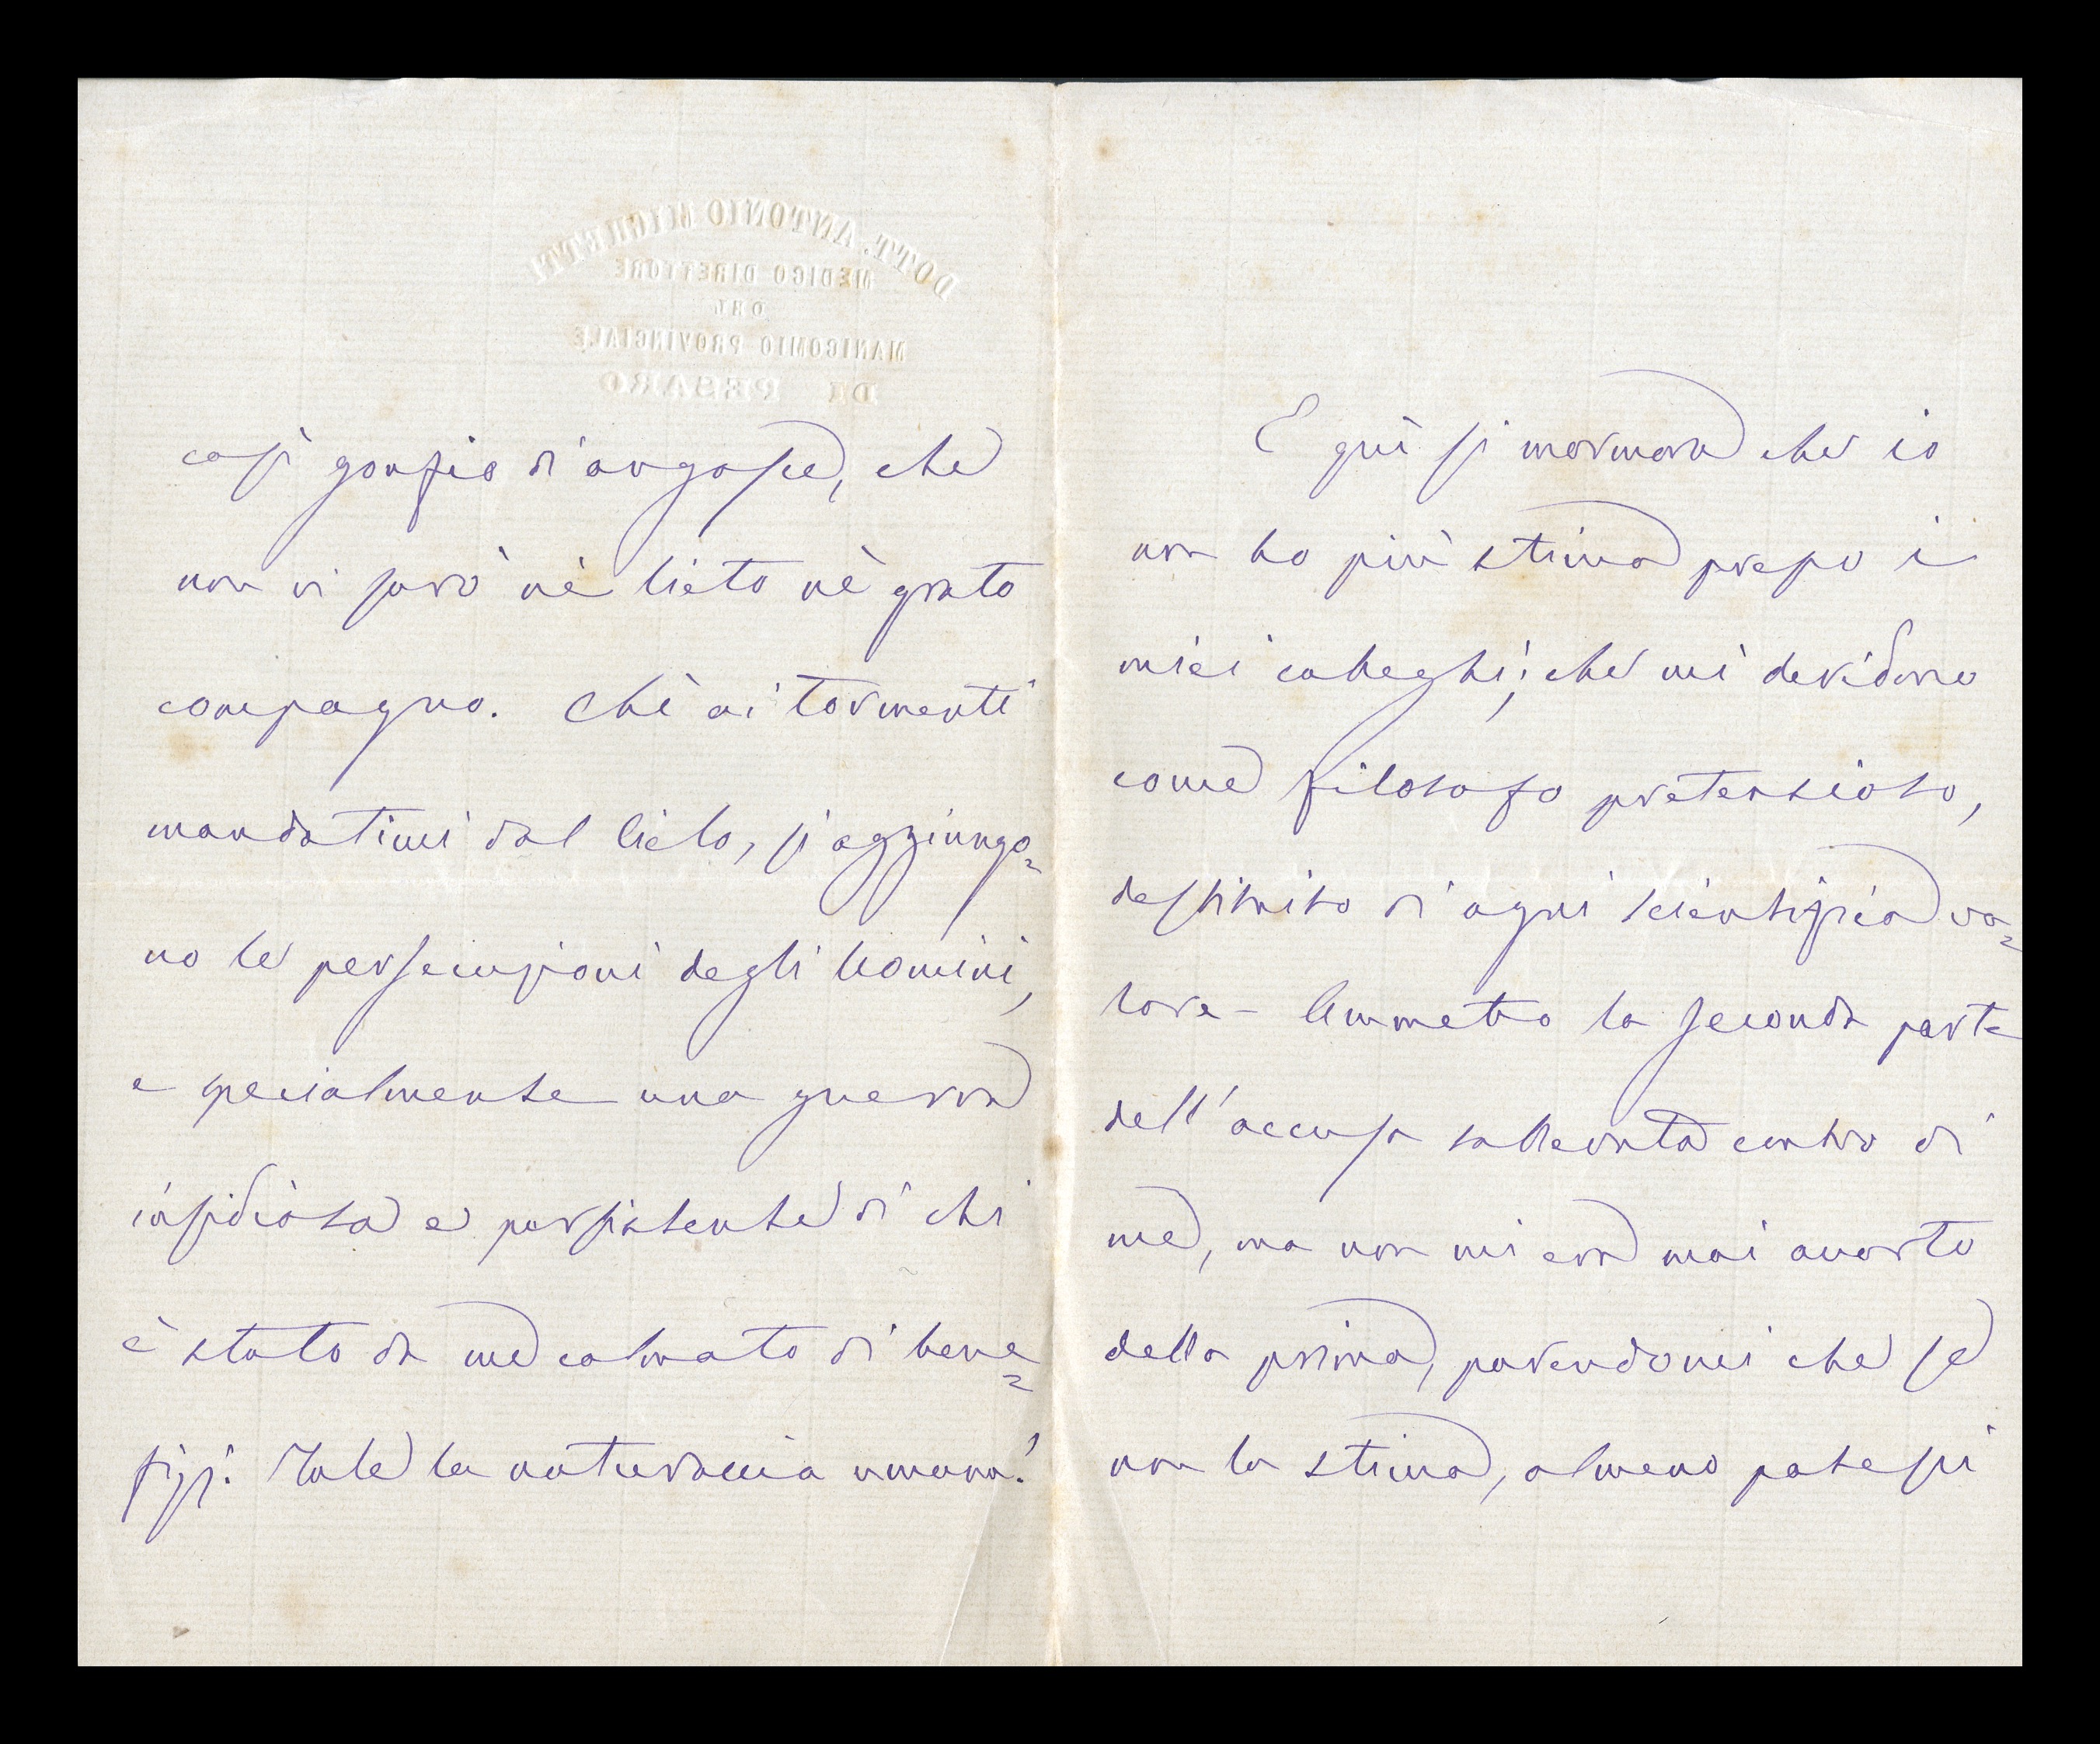 DOTT. ANTONIO MICHETTI
MEDICO DIRETTORE
DEL
MANICOMIO PROVINCIALE
DI PESARO
così gonfio d'angosce, che
non vi sarò nè lieto nè grato
compagno. Chè ai tormenti
mandatimi dal Cielo, si aggiungo=
no le persecuzioni degli Uomini,
e specialmente una guerra
insidiosa e persistente di chi
è stato da me colmato di bene=
fizj. Tale la naturaccia umana!
E quì si mormora che io
non ho più stima presso i
miei colleghi; che mi deridono
come filosofo pretensioso,
destituito di ogni scientifica va=
lore - Ammetto la seconda parte
dell'accusa sollevata contro di
me, ma non mi era mai accorto
della prima, parendomi che se
non la stima, almeno potessi